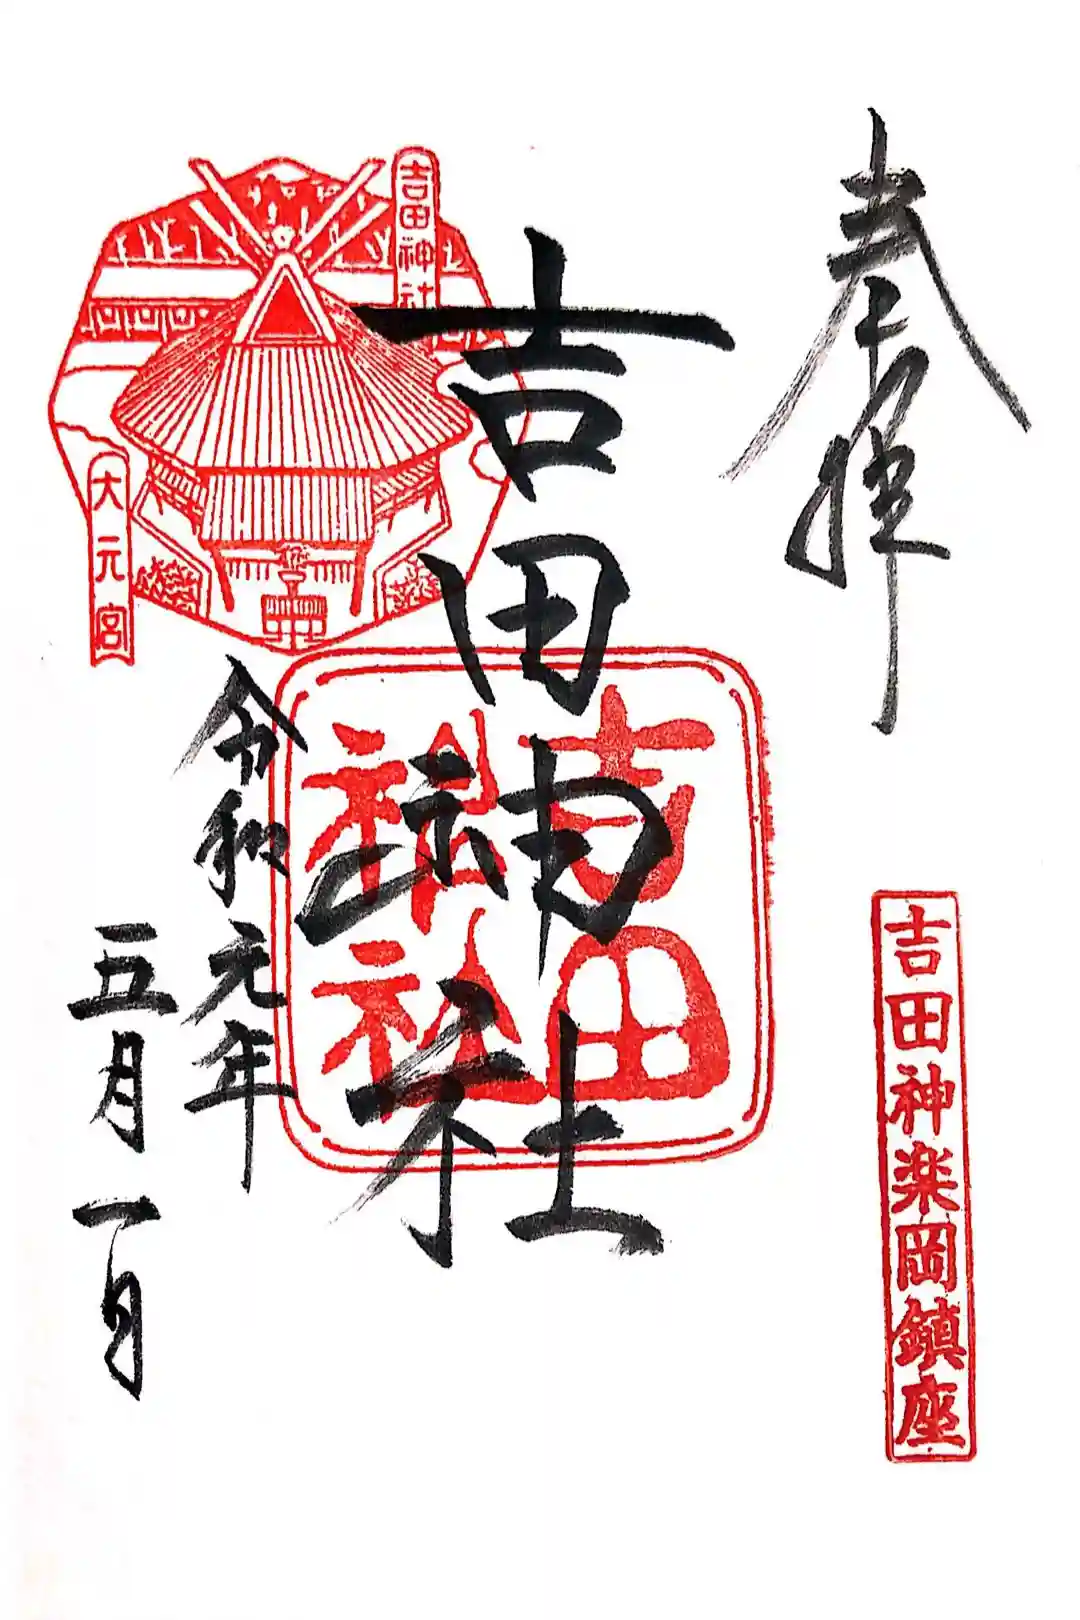 奉拝
吉田神楽岡鎮座
吉田神社
吉田
神社
吉田神社
大元宮
令和元年
五月一日